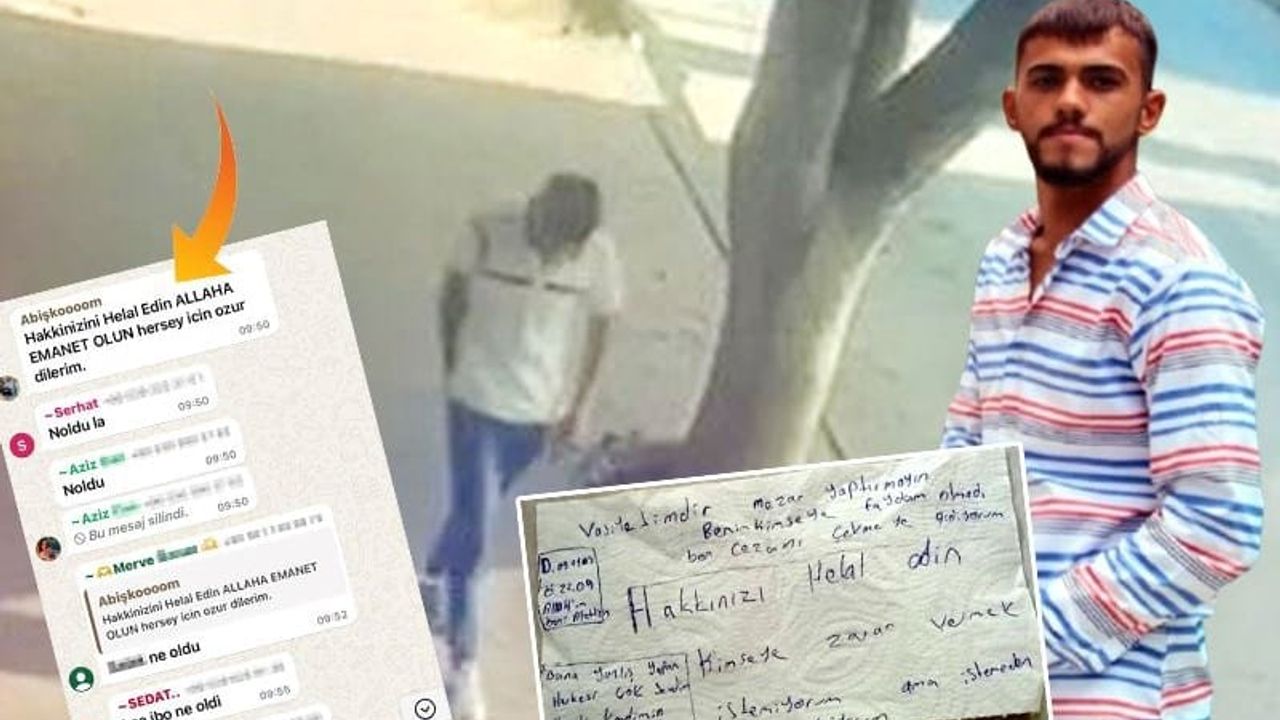 Abişkoooom
Hakkinizini Helal Edin ALLAHA
EMANET OLUN hersey icin ozur
dilerim.
09:50
S
~Serhat
Noldu la
09:50
~Aziz
Noldu
09:50
~Aziz
Bu mesaj silindi.
09:50
~Merve
Abişkoooom
Hakkinizini Helal Edin ALLAHA EMANET
OLUN hersey icin ozur dilerim.
ne oldu
09:52
~SEDAT..
ibo ne oldi
09:55
Vasiletimdir mezar yaptırmayın
Benim kimseye faydam olmadı
ben cezamı çekmeye gidiyorum
Hakkınızı Helal edin
Kimseye zarar vermek
istemiyorum ama istemeden
Bana yanlış yapan
Herkesi çok